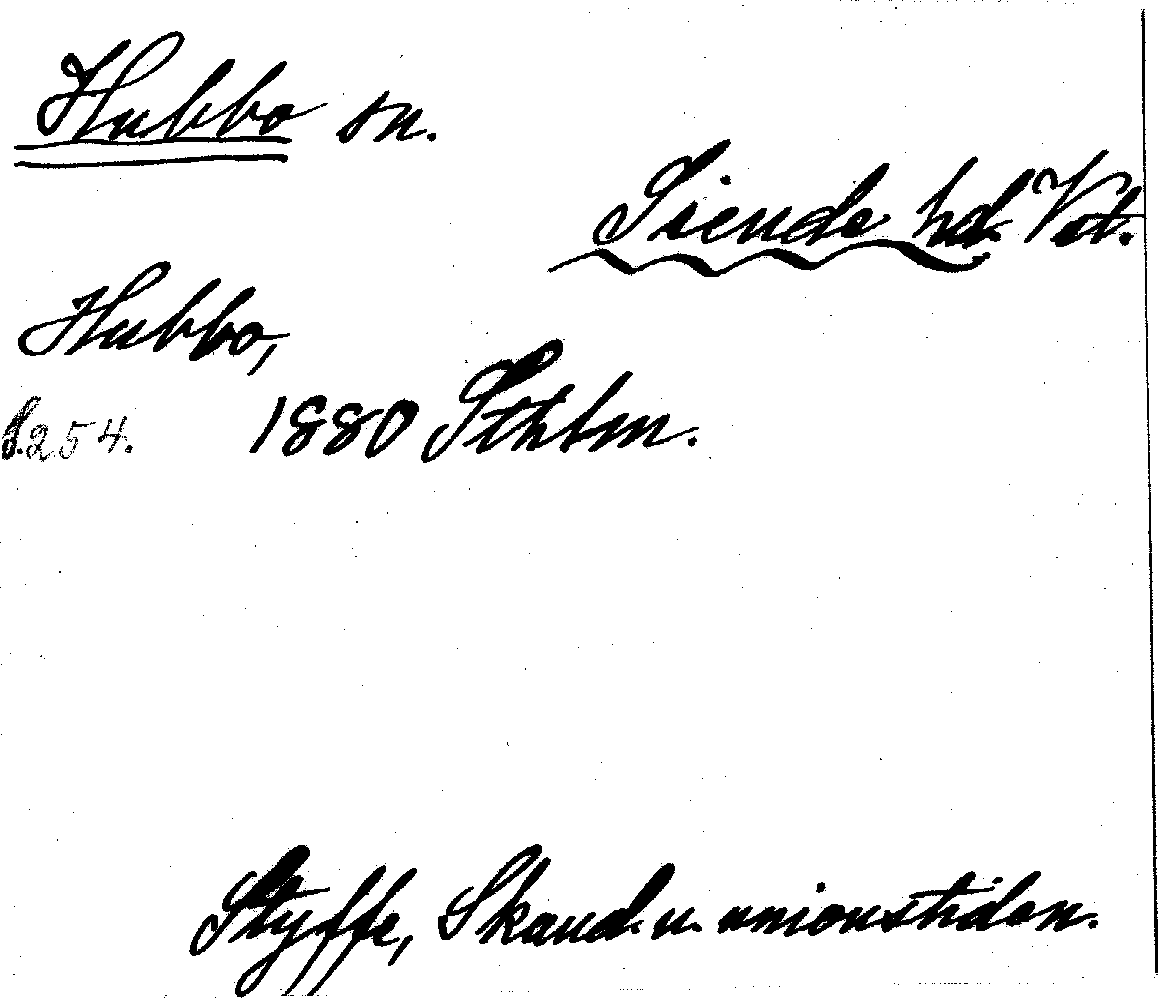 Hubbo sn.
Siende hd. Vst.
Hubbo,
S. 254. 1880 Sthlm.
Styffe, Skand. u. unionstiden.